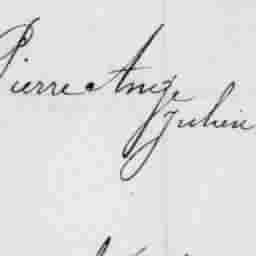 Pierre Ange
Julien